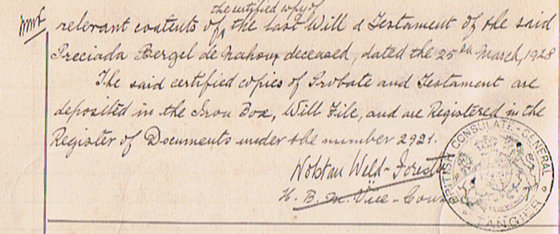 the certified copy of
relevant contents of the last Will & Testament of the said
Preciada Bergel de Nahon, deceased, dated the 25th March, 1928
The said certified copies of Probate and Testament are
deposited in the Iron Box, Will File, and are Registered in the
Register of Documents under the number 2921.
Weld-Forest
H. B. M. Vice-Cons
BRITISH CONSULATE-GENERAL
TANGIER